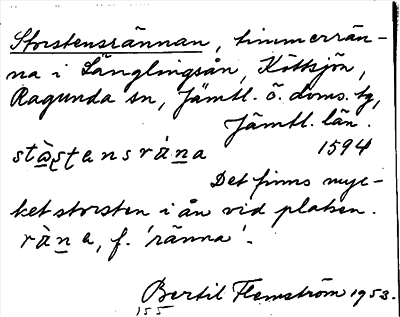 Storstensrännan, timmerrän-
na i Långlingsån, Köttsjön,
Ragunda sn, Jämtl. ö. doms. tg,
Jämtl. län.
1594
Det finns myc-
ket storsten i ån vid platsen.
ràṉa, f. 'ränna'.
Bertil Flemström 1953.
155